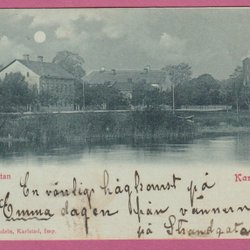 tian
Kar
En vänlig hågkomst på
Emma dagen från vännern
på Strandgata
dstein, Karlstad, Imp.